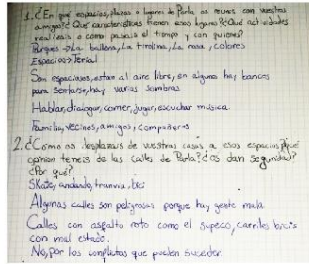 1. ¿En que espacios, plazas o lugares de Parla os reunís con vuestros
amigos? Qué características tienen esos lugares? Qué actividades
realizais o como pasais el tiempo y con quienes?
Parques → La ballena, La tirolina, La rosa, colores
Espacios → Ferial
Son espaciosos, estan al aire libre, en alguno hay bancos
para sentarse, hay varias sombras
Hablar, dialogar, comer, jugar, escuchar musica
Familia, vecinos, amigos, compañeros
2. ¿Cómo os desplazais de vuestras casas a esos espacios? ¿Qué
opinion teneis de las calles de Parla? ¿os dan seguridad?
¿Por qué?
Skate, andando, tranvia, bici
Algunas calles son peligrosas porque hay gente mala
Calles con asfalto roto como el supeco, carriles bicis
con mal estado.
No, por los conflictos que pueden suceder